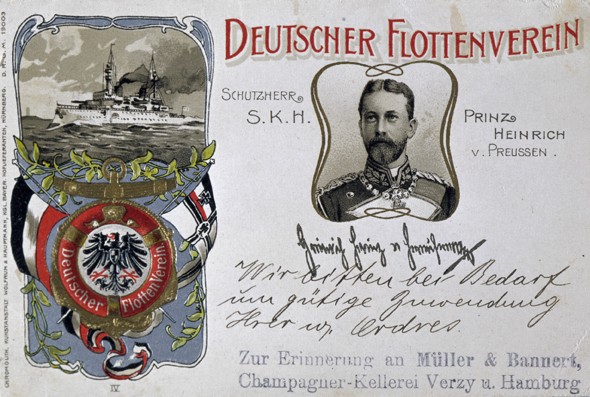 DEUTSCHER FLOTTENVEREIN
SCHUTZHERR
S.K.H.
PRINZ
HEINRICH
V. PREUSSEN.
Deutscher Flottenverein.
Heinrich Prinz v Preussen
Wir bitten bei Bedarf
um gütige Zuwendung
Ihrer w. Ordres.
Zur Erinnerung an Müller & Bannert,
Champagner-Kellerei Verzy u. Hamburg
IV
CHROMOLITH. KUNSTANSTALT WOLFRUM & HAUPTMANN, KGL. BAYER. HOFLIEFERANTEN, NÜRNBERG. D.R.G.M. 19003